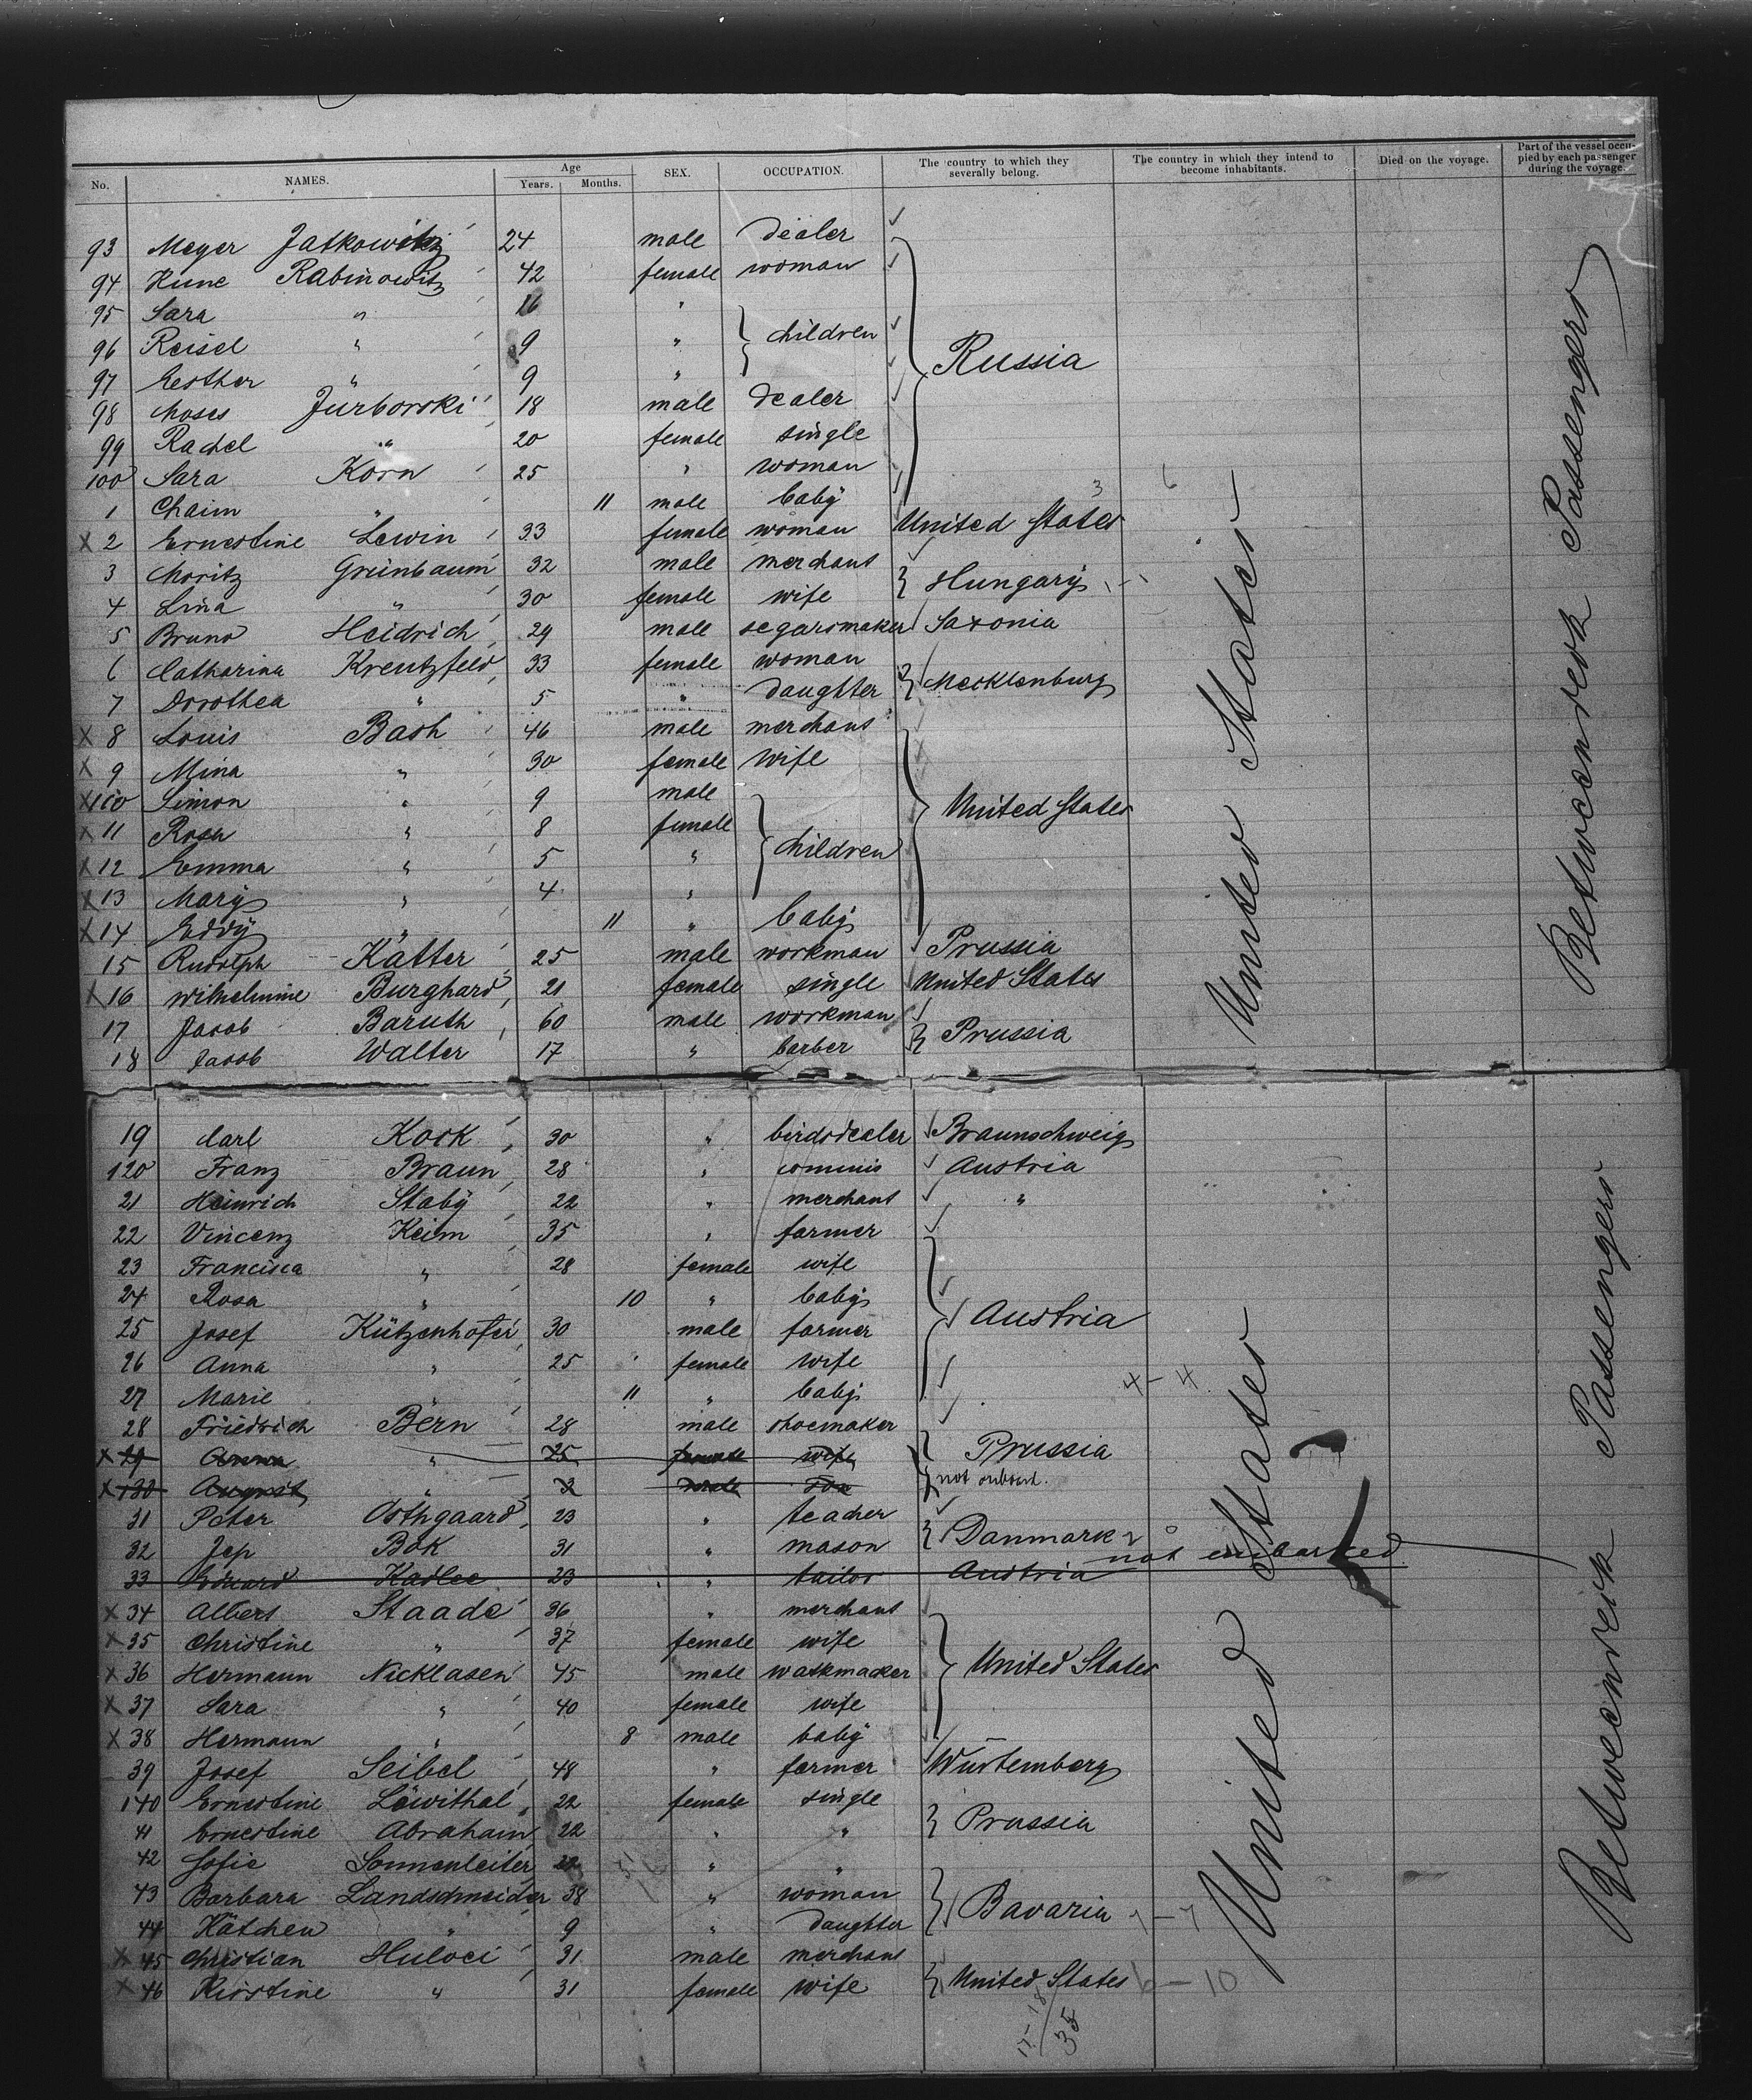 No. NAMES. Age Years. Months. SEX. OCCUPATION. The country to which they severally belong. The country in which they intend to become inhabitants. Died on the voyage. Part of the vessel occupied by each passenger during the voyage.
93 Meyer Jatkowitz 24 male dealer
94 Hune Rabinowitz 42 female woman
95 Sara " 16 "
96 Reisel " 9 " children Russia
97 Eesther " 9 "
98 Moses Jurborski 18 male dealer
99 Rachel " 20 female single
100 Sara Korn 25 " woman
1 Chaim " 11 male baby
X 2 Ernestine Lewin 33 female woman United States
3 Moritz Grünbaum 32 male merchant
4 Lina " 30 female wife Hungary
5 Bruno Heidrich 29 male segarsmaker Saxonia
6 Catharina Kreutzfeld 33 female woman
7 Dorothea " 5 " daughter Mecklenburg
X 8 Louis Bash 46 male merchant
X 9 Mina " 30 female wife
X 110 Simon " 9 male United States
X 11 Rosa " 8 female
X 12 Emma " 5 " children
X 13 Mary " 4 "
X 14 Eddy " 11 " baby
15 Rudolph Katter 25 male workman Prussia
X 16 Wilhelmine Burghard 21 female single United States
17 Jacob Baruth 60 male workman
18 Jacob Walter 17 " barber Prussia
United States
Betweendeck Passengers
19 Carl Kock 30 " birdsdealer Braunschweig
120 Franz Braun 28 " commis Austria
21 Heinrich Staby 22 " merchant "
22 Vincenz Keim 35 " farmer
23 Francisca " 28 female wife
24 Rosa " 10 " baby
25 Josef Kützenhofer 30 male farmer Austria
26 Anna " 25 female wife
27 Marie " 11 " baby 4 - 4
28 Friedrich Bern 28 male shoemaker
X 29 Anna " 25 female wife Prussia
X 130 August " 2 male son not onboard.
31 Peter Osthgaard 23 " teacher
32 Jep Bok 31 " mason Danmark
33 Eduard Kadlec 23 " tailor Austria not embarked
X 34 Albert Staade 36 " merchant
X 35 Christine " 37 female wife
X 36 Hermann Nicklasen 45 male watkmacker United States
X 37 Sara " 40 female wife
X 38 Hermann " 8 male baby
39 Josef Seibel 48 " farmer Würtemberg
140 Ernestine Löwithal 22 female single
41 Ernestine Abraham 22 " " Prussia
42 Sofie Sonnenleiter 22 " "
43 Barbara Landschneider 38 " woman
44 Kätchen " 9 " daughter Bavaria
X 45 Christian Huloei 31 male merchant
X 46 Kirstine " 31 female wife United States 6 - 10
United States
Betweendeck Passengers